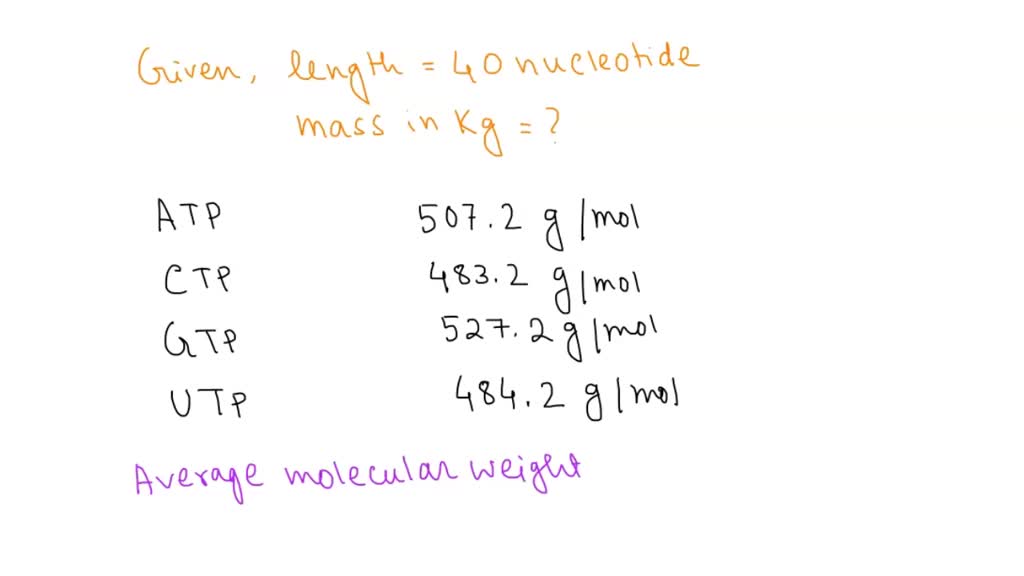 Given, length = 40 nucleotide
mass in Kg = ?
ATP 507.2 g/mol
CTP 483.2 g/mol
GTP 527.2 g/mol
UTP 484.2 g/mol
Average molecular weight